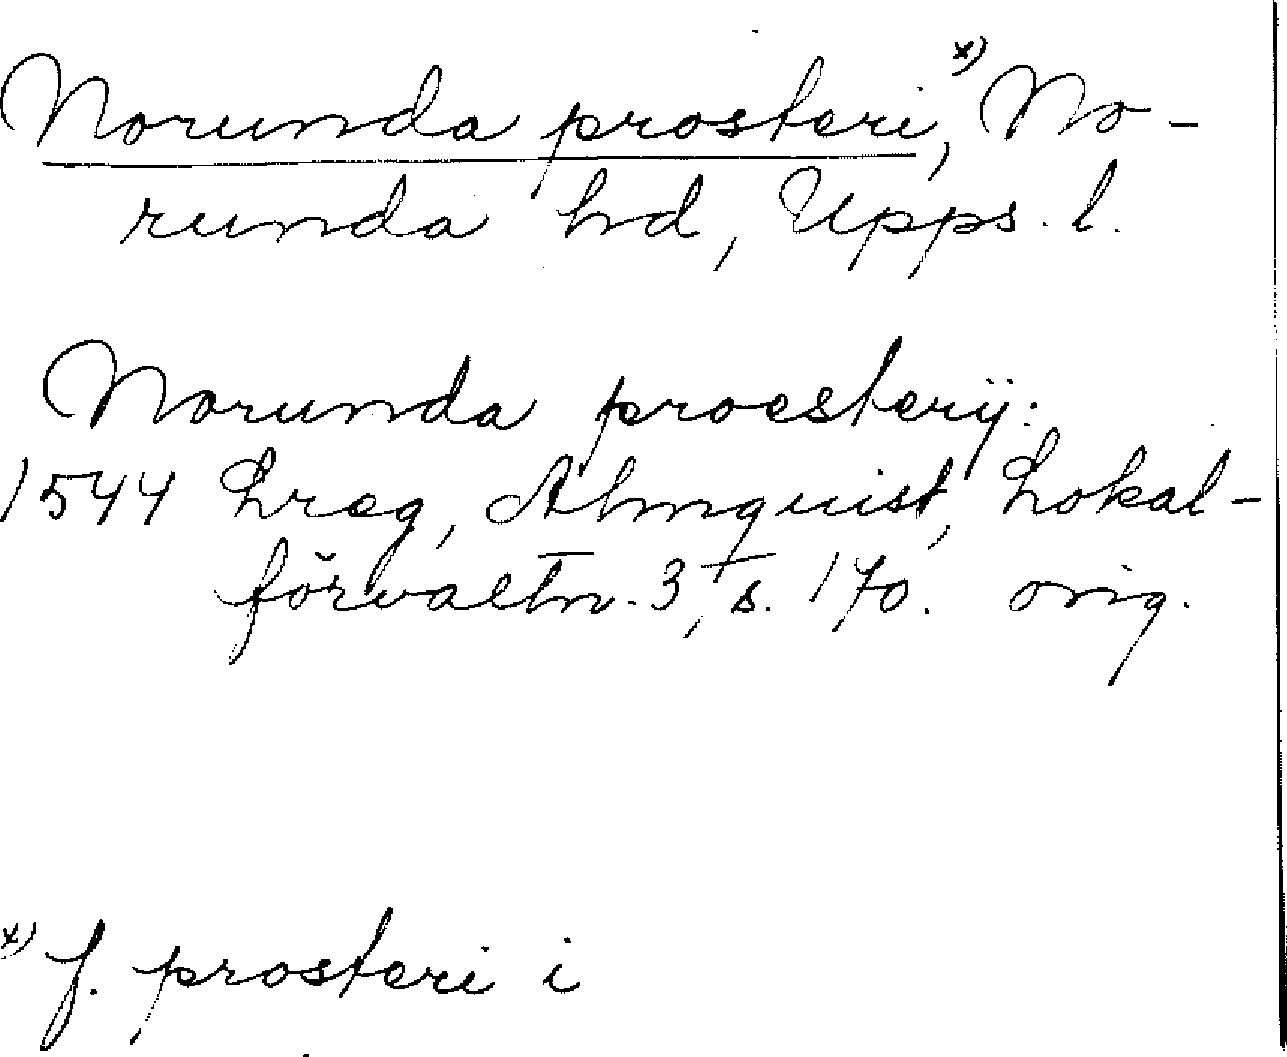 Norunda prosteri,*) No-
runda hd, Upps. l.
Norunda proesterÿ:
1544 Lreg, Almquist, Lokal-
förvaltn. 3, s. 170. orig.
*) f. prosteri i